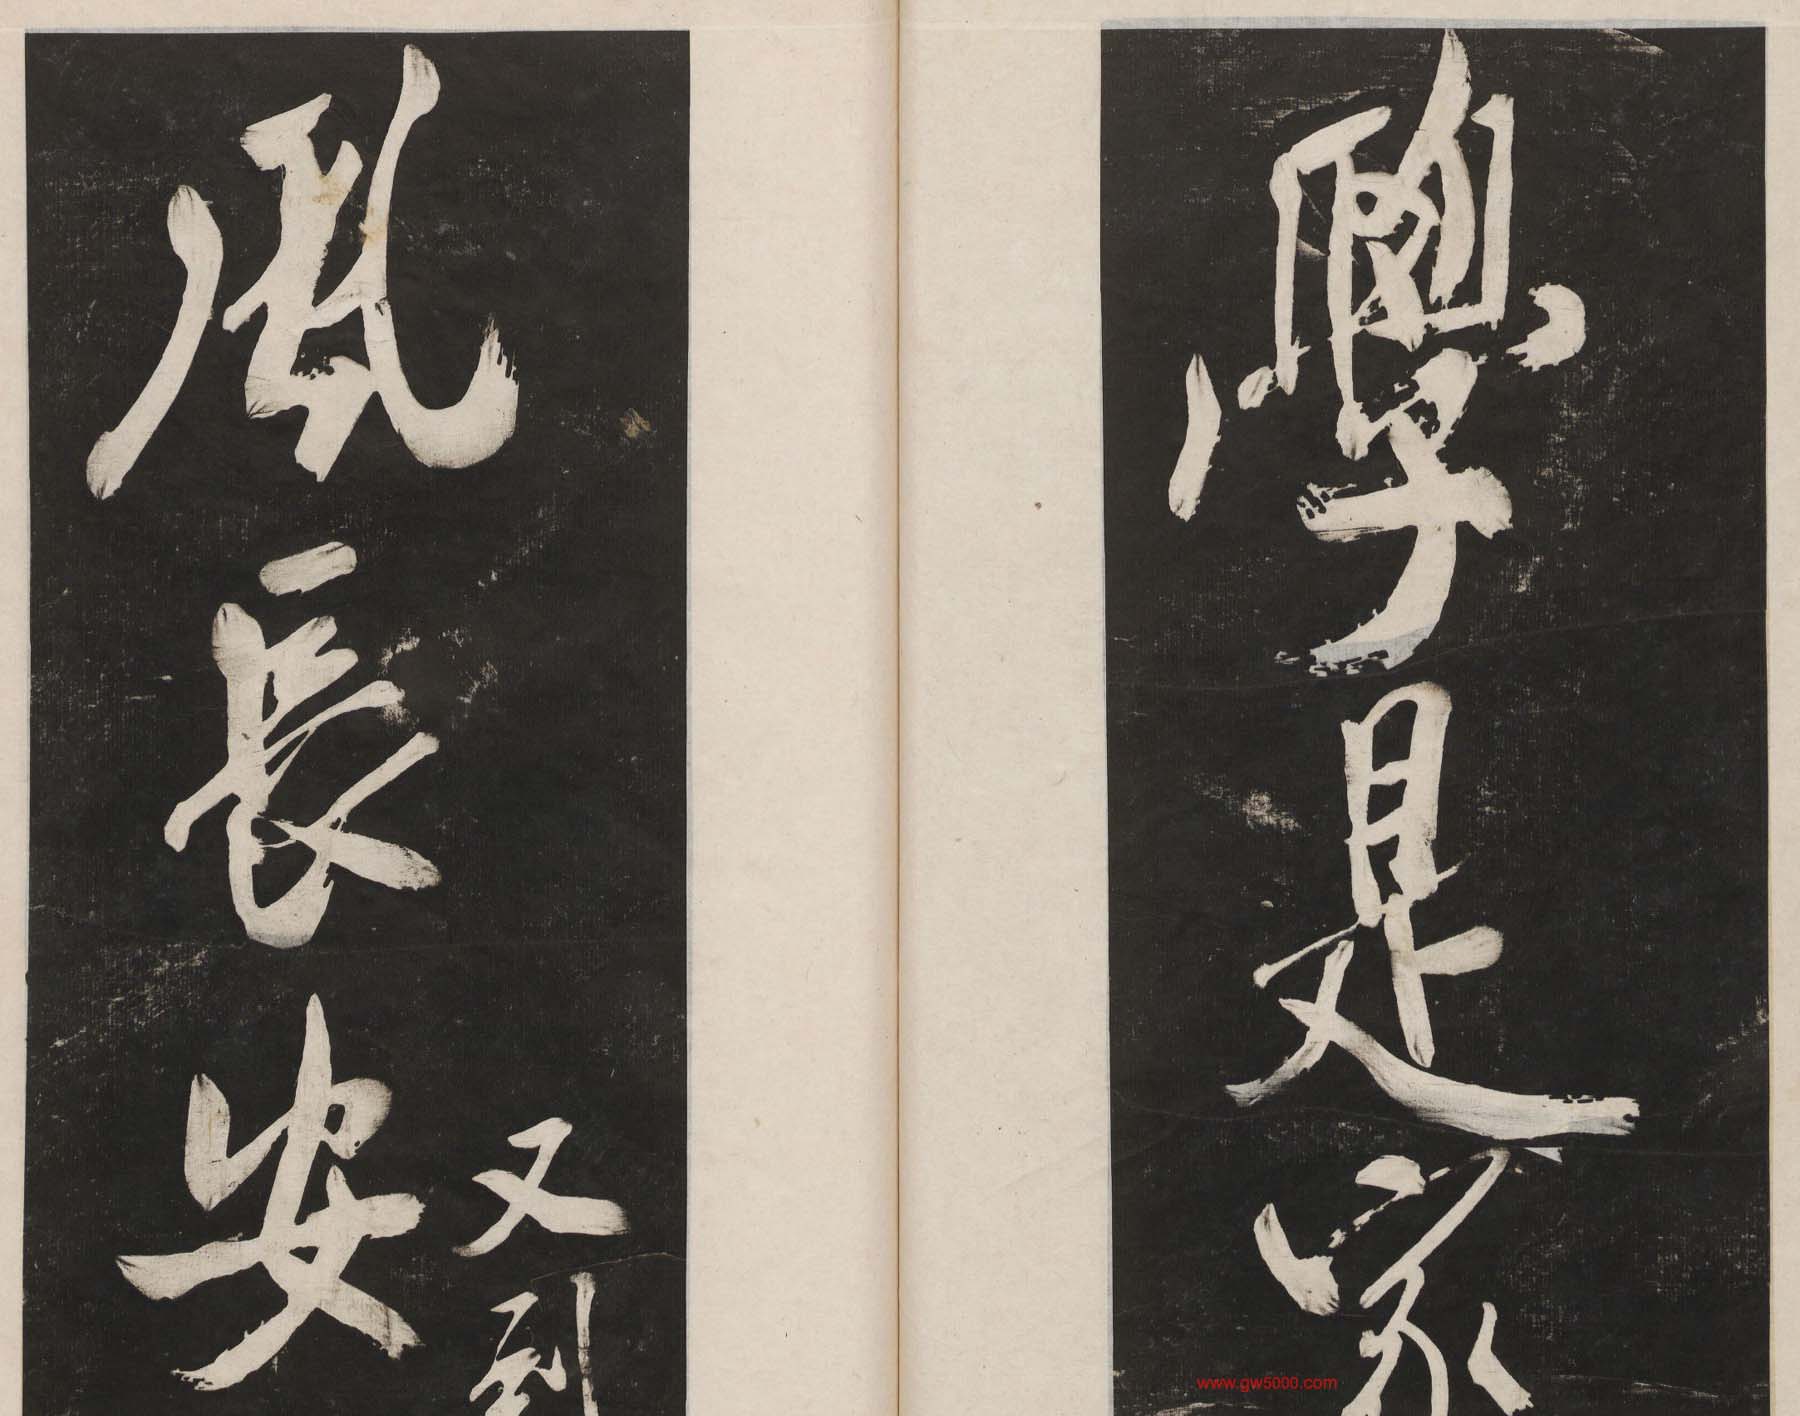 學是家
風長安
又到
www.gw5000.com